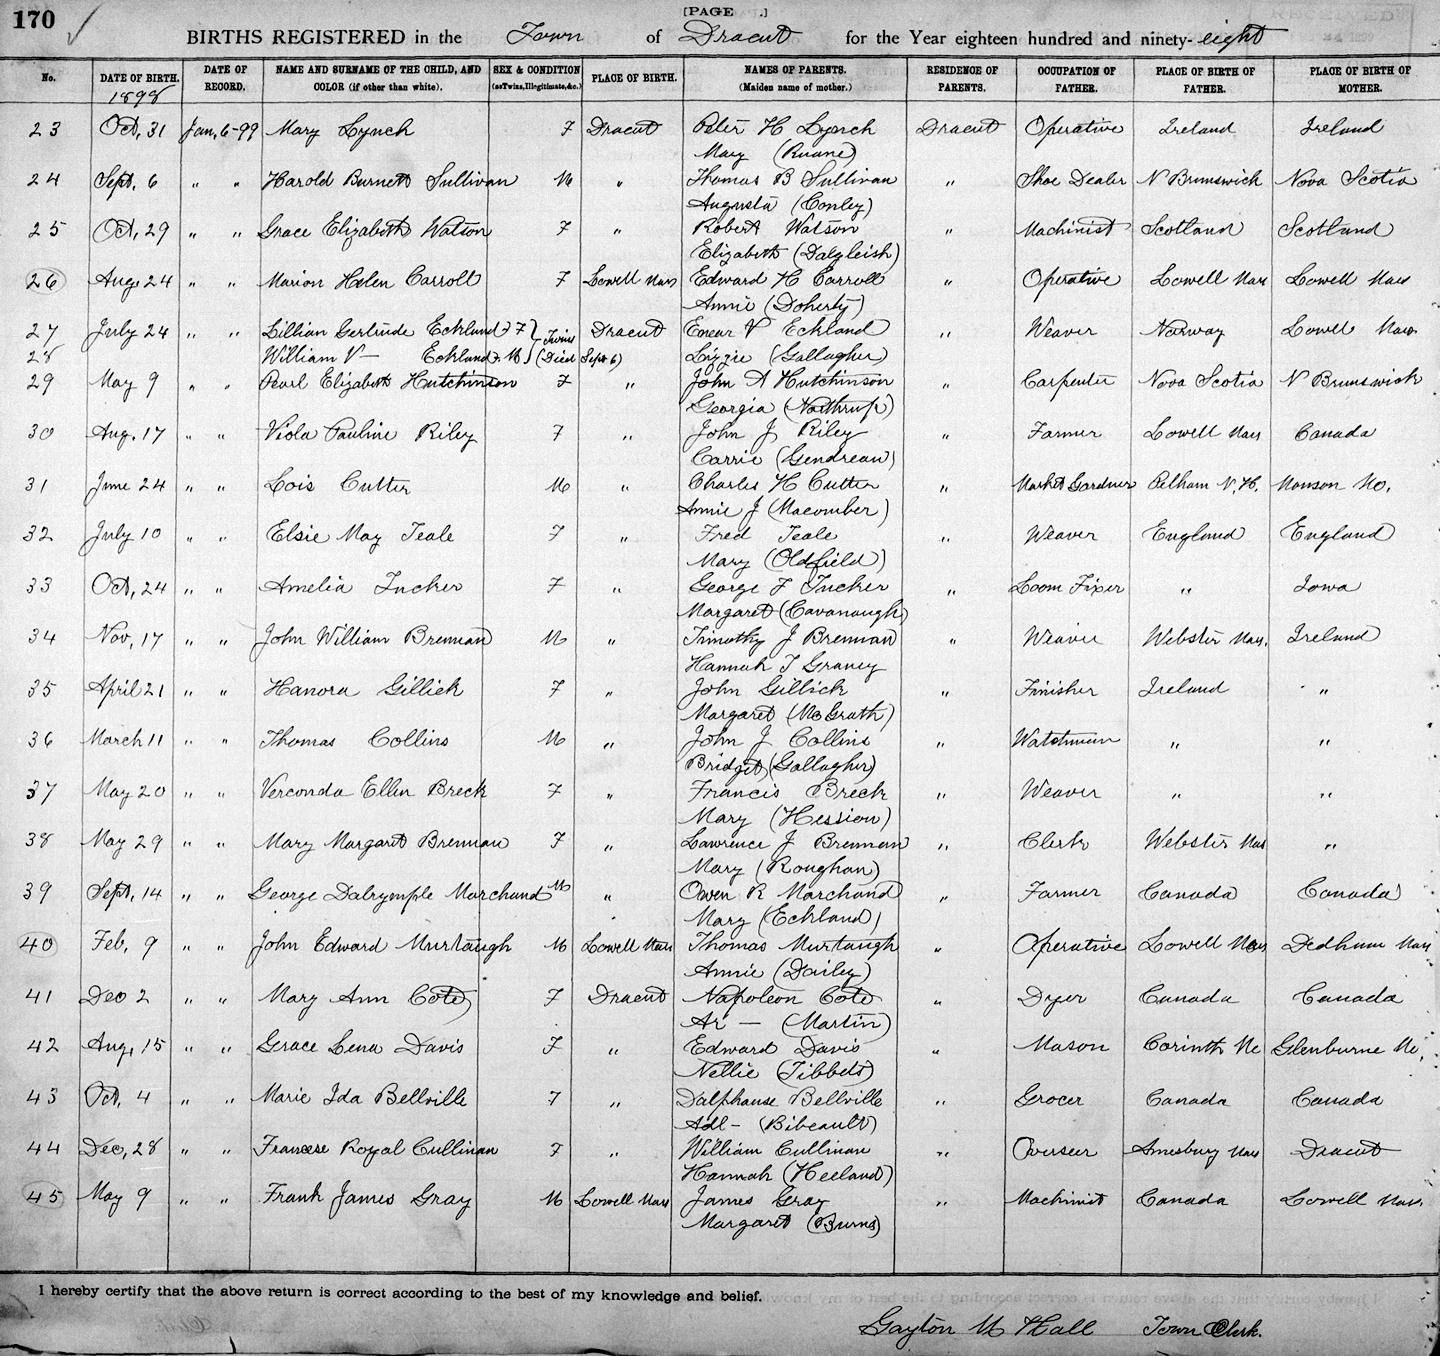 170
[PAGE .]
BIRTHS REGISTERED in the Town of Dracut for the Year eighteen hundred and ninety-eight
No. DATE OF BIRTH. DATE OF RECORD. NAME AND SURNAME OF THE CHILD, AND COLOR (if other than white). SEX & CONDITION (as Twins, Illegitimate, &c.) PLACE OF BIRTH. NAMES OF PARENTS. (Maiden name of mother.) RESIDENCE OF PARENTS. OCCUPATION OF FATHER. PLACE OF BIRTH OF FATHER. PLACE OF BIRTH OF MOTHER.
1898
23 Oct, 31 Jan, 6-99 Mary Lynch F Dracut Peter H Lynch Dracut Operative Ireland Ireland
Mary (Ruane)
24 Sept, 6 " " Harold Burnett Sullivan M " Thomas B Sullivan " Shoe Dealer N Brunswick Nova Scotia
Augusta (Conley)
25 Oct, 29 " " Grace Elizabeth Watson F " Robert Watson " Machinist Scotland Scotland
Elizabeth (Dalgleish)
26 Aug, 24 " " Marion Helen Carroll F Lowell Mass Edward H Carroll " Operative Lowell Mass Lowell Mass
Annie (Doherty)
27 July 24 " " Lillian Gertrude Eckland F } Twins Dracut Enear V Eckland " Weaver Norway Lowell Mass
28 William V — Eckland M } (Died Sept 6) Lizzie (Gallagher)
29 May 9 " " Pearl Elizabeth Hutchinson F " John A Hutchinson " Carpenter Nova Scotia N Brunswick
Georgia (Northrup)
30 Aug, 17 " " Viola Pauline Riley F " John J Riley " Farmer Lowell Mass Canada
Carrie (Gendreau)
31 June 24 " " Lois Cutter M " Charles H Cutter " Market Gardner Pelham N.H. Monson Me,
Annie J (Macomber)
32 July 10 " " Elsie May Teale F " Fred Teale " Weaver England England
Mary (Oldfield)
33 Oct, 24 " " Amelia Tucker F " George F Tucker " Loom Fixer " Iowa
Margaret (Cavanaugh)
34 Nov, 17 " " John William Brennan M " Timothy J Brennan " Weaver Webster Mass, Ireland
Hannah T Graney
35 April 21 " " Hanora Gillick F " John Gillick " Finisher Ireland "
Margaret (McGrath)
36 March 11 " " Thomas Collins M " John J Collins " Watchman " "
Bridget (Gallagher)
37 May 20 " " Verconda Ellen Breck F " Francis Breck " Weaver " "
Mary (Hession)
38 May 29 " " Mary Margaret Brennan F " Lawrence J Brennan " Clerk Webster Mass "
Mary (Roughan)
39 Sept, 14 " " George Dalrymple Marchand M " Owen R Marchand " Farmer Canada Canada
Mary (Eckland)
40 Feb, 9 " " John Edward Murtaugh M Lowell Mass Thomas Murtaugh " Operative Lowell Mass Dedham Mass
Annie (Dailey)
41 Dec 2 " " Mary Ann Cote F Dracut Napoleon Cote " Dyer Canada Canada
Ar — (Martin)
42 Aug, 15 " " Grace Lena Davis F " Edward Davis " Mason Corinth Me Glenburne Me,
Nellie (Tibbets)
43 Oct, 4 " " Marie Ida Bellville F " Dalphause Bellville " Grocer Canada Canada
Adl- (Bibeault)
44 Dec, 28 " " Francese Royal Cullinan F " William Cullinan " Overseer Amesbury Mass Dracut
Hannah (Heeland)
45 May 9 " " Frank James Gray M Lowell Mass James Gray " Machinist Canada Lowell Mass,
Margaret (Burns)
I hereby certify that the above return is correct according to the best of my knowledge and belief.
Gayton M Hall Town Clerk.